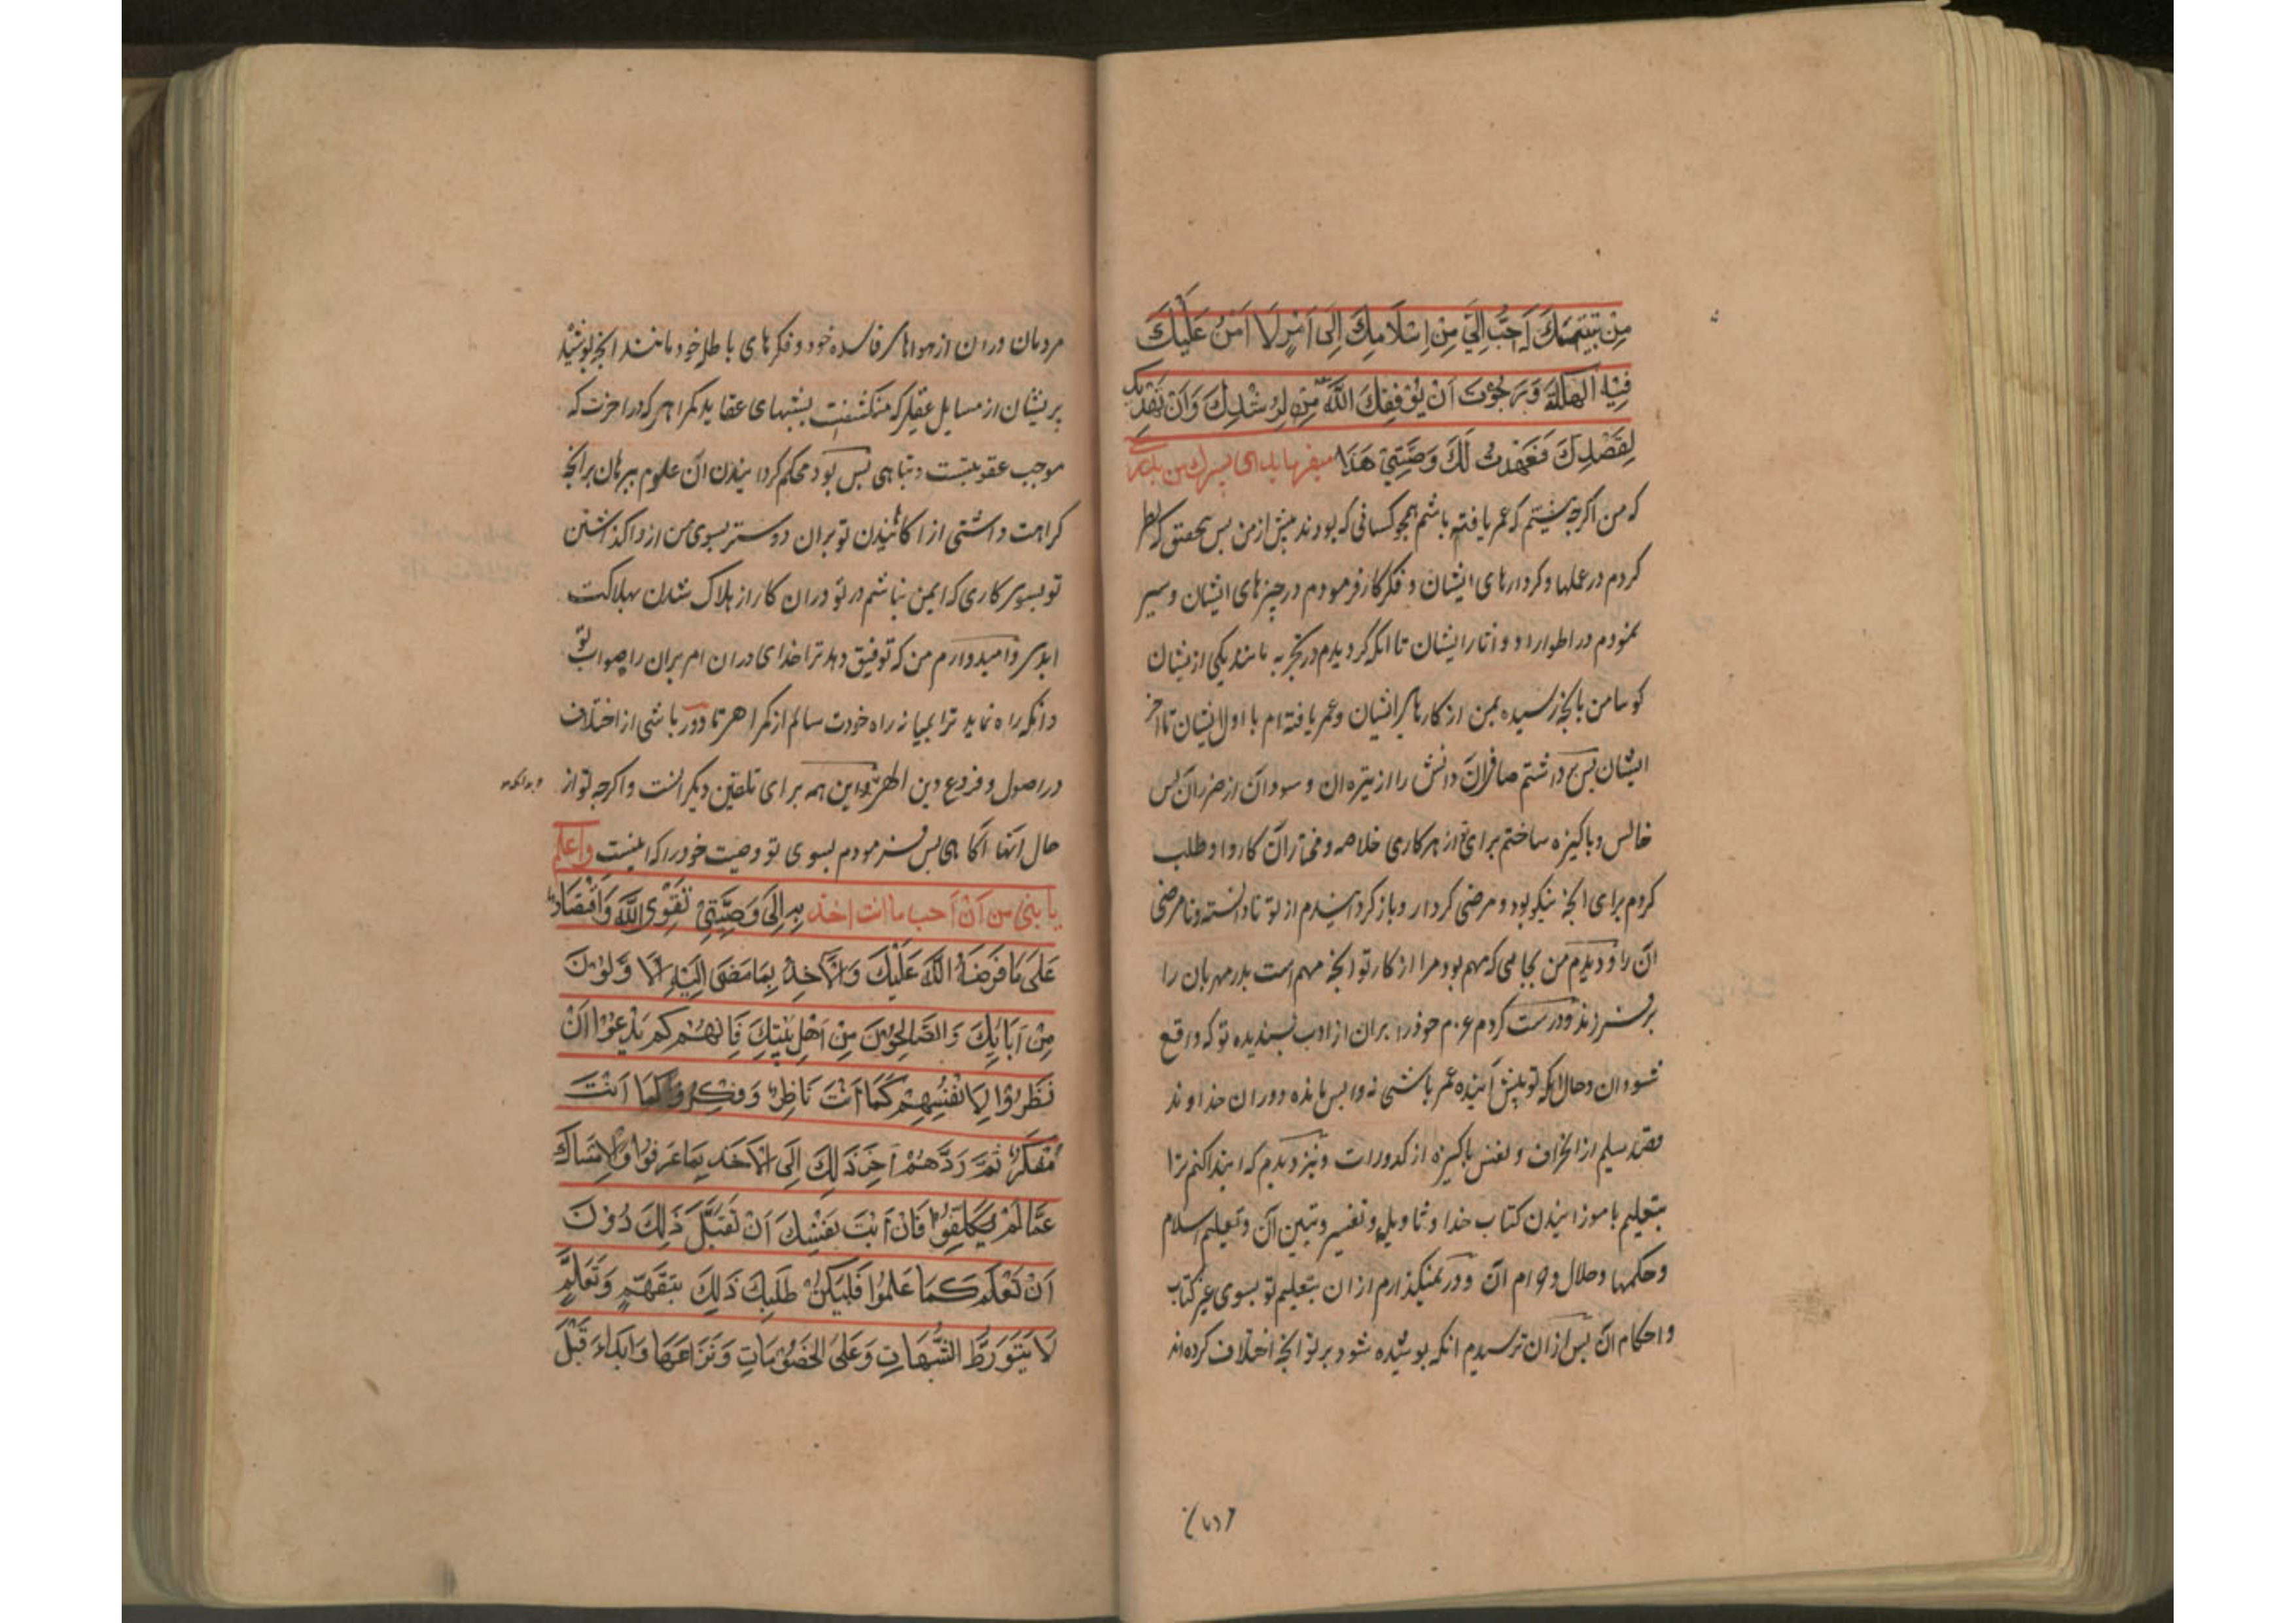 مِنْ تَنْبِيهِكَ اَحَبَّ اِلَيَّ مِنْ اِسْلَامِكَ اِلَى اَمْرٍ لَا اٰمَنُ عَلَيْكَ
فِيْهِ الْهَلَكَةَ وَرَجَوْتُ اَنْ يُوَفِّقَكَ اللّٰهُ فِيْهِ لِرُشْدِكَ وَاَنْ يَهْدِيَكَ
لِقَصْدِكَ فَعَهِدْتُ لَكَ وَصِيَّتِيْ هٰذَا میفرماید ای پسرك من بدرستی
که من اگرچه نیستم که عمر یافته باشم همچو کسانی که بودند پیش از من پس بتحقیق که نظر
کردم در عملها و کردارهای ایشان و فکر کار فرمودم در چیزهای ایشان و سیر
نمودم در اطوار و اثار ایشان تا انکه گردیدم در تجربه مانند یکی از یشان
گوئیا من بانچه رسیده بمن از کارهای ایشان و عمر یافته ام با اول ایشان تا اخر
ایشان پس دانستم صاف ان دانش را از تیره ان و سود ان از ضرر ان پس
خالص و پاکیزه ساختم برای تو از هر کاری خلاصه و مختار ان کار را و طلب
کردم برای تو انچه نیکو بود و مرضی کردار و باز گردانیدم از تو نادانسته و نامرضی
ان را و دیدم من بجایی که مهم بود مرا از کار تو انچه مهم است پدر مهربان را
بر فرزند و درست کردم عزم خود را بران از ادب پسندیده تو که واقع
شود ان و حال انکه تو پیش آینده عمر باشی نه واپس مانده دوران خداوند
قصد سلیم از انحراف و نفس پاکیزه از کدورات و نیز دیدم که ابتدا کنم ترا
بتعلیم باموزانیدن کتاب خدا و تاویل و تفسیر و تبیین ان و تعلیم اسلام
و حکمها و حلال و حرام ان و در نمیگذارم از ان بتعلیم تو بسوی غیر کتاب
و احکام ان پس از ان ترسیدم انکه پوشیده شود بر تو انچه اختلاف کرده اند
مردمان در ان از هواهای فاسده خود و فکرهای باطل خود مانند انچه پوشید
بریشان از مسایل عقلی که منکشفت بشبهای عقاید گمراهی که در اخرت که
موجب عقوبتست و تباهی پس بود محکم گردانیدن ان علوم ببرهان بر انچه
کراهت داشتی از اگاهانیدن تو بران دوستر بسوی من از واگذاشتن
تو بسوی کاری که ایمن نباشم بر تو در ان کار از هلاک شدن بهلاکت
ابدی و امیدوارم من که توفیق دهد ترا خدای در ان امر بران راه صواب تو
و انکه راه نماید ترا بمیانه راه خودت سالم از گمراهی تا دور باشی از اختلاف
در اصول و فروع دین اطهر و این همه برای تلقین دیگرانست و اگرچه تو از
حال انها اگاهی پس فرمودم بسوی تو وصیت خود را که اینست وَاعْلَمْ
یا بنی من اَنّ اَحب ما انت اخذ بِهِ اِلَيَّ وَصِيَّتِيْ تَقْوَى اللّٰهِ وَاقْتِصَادٌ
عَلَى مَا فَرَضَهُ اللّٰهُ عَلَيْكَ وَالْاَخْذُ بِمَا مَضَى اِلَيْهِ الْاَوَّلُوْنَ
مِنْ اٰبَائِكَ وَالصَّالِحُوْنَ مِنْ اَهْلِ بَيْتِكَ فَاِنَّهُمْ لَمْ يَدَعُوْا اَنْ
نَظَرُوْا لِاَنْفُسِهِمْ كَمَا اَنْتَ نَاظِرٌ وَفَكَّرُوْا كَمَا اَنْتَ
مُفَكِّرٌ ثُمَّ رَدَّهُمْ اٰخِرُ ذٰلِكَ اِلَى الْاَخْذِ بِمَا عَرَفُوْا وَالْاِمْسَاكِ
عَمَّا لَمْ يُكَلَّفُوْا فَاِنْ اَبَتْ نَفْسُكَ اَنْ تَقْبَلَ ذٰلِكَ دُوْنَ
اَنْ تَعْلَمَ كَمَا عَلِمُوْا فَلْيَكُنْ طَلَبُكَ ذٰلِكَ بِتَفَهُّمٍ وَتَعَلُّمٍ
لَا بِتَوَرُّطِ الشُّبُهَاتِ وَعَلَى الْخُصُوْمَاتِ وَنَزَاعِهَا وَابْدَاءَ قَبْلَ